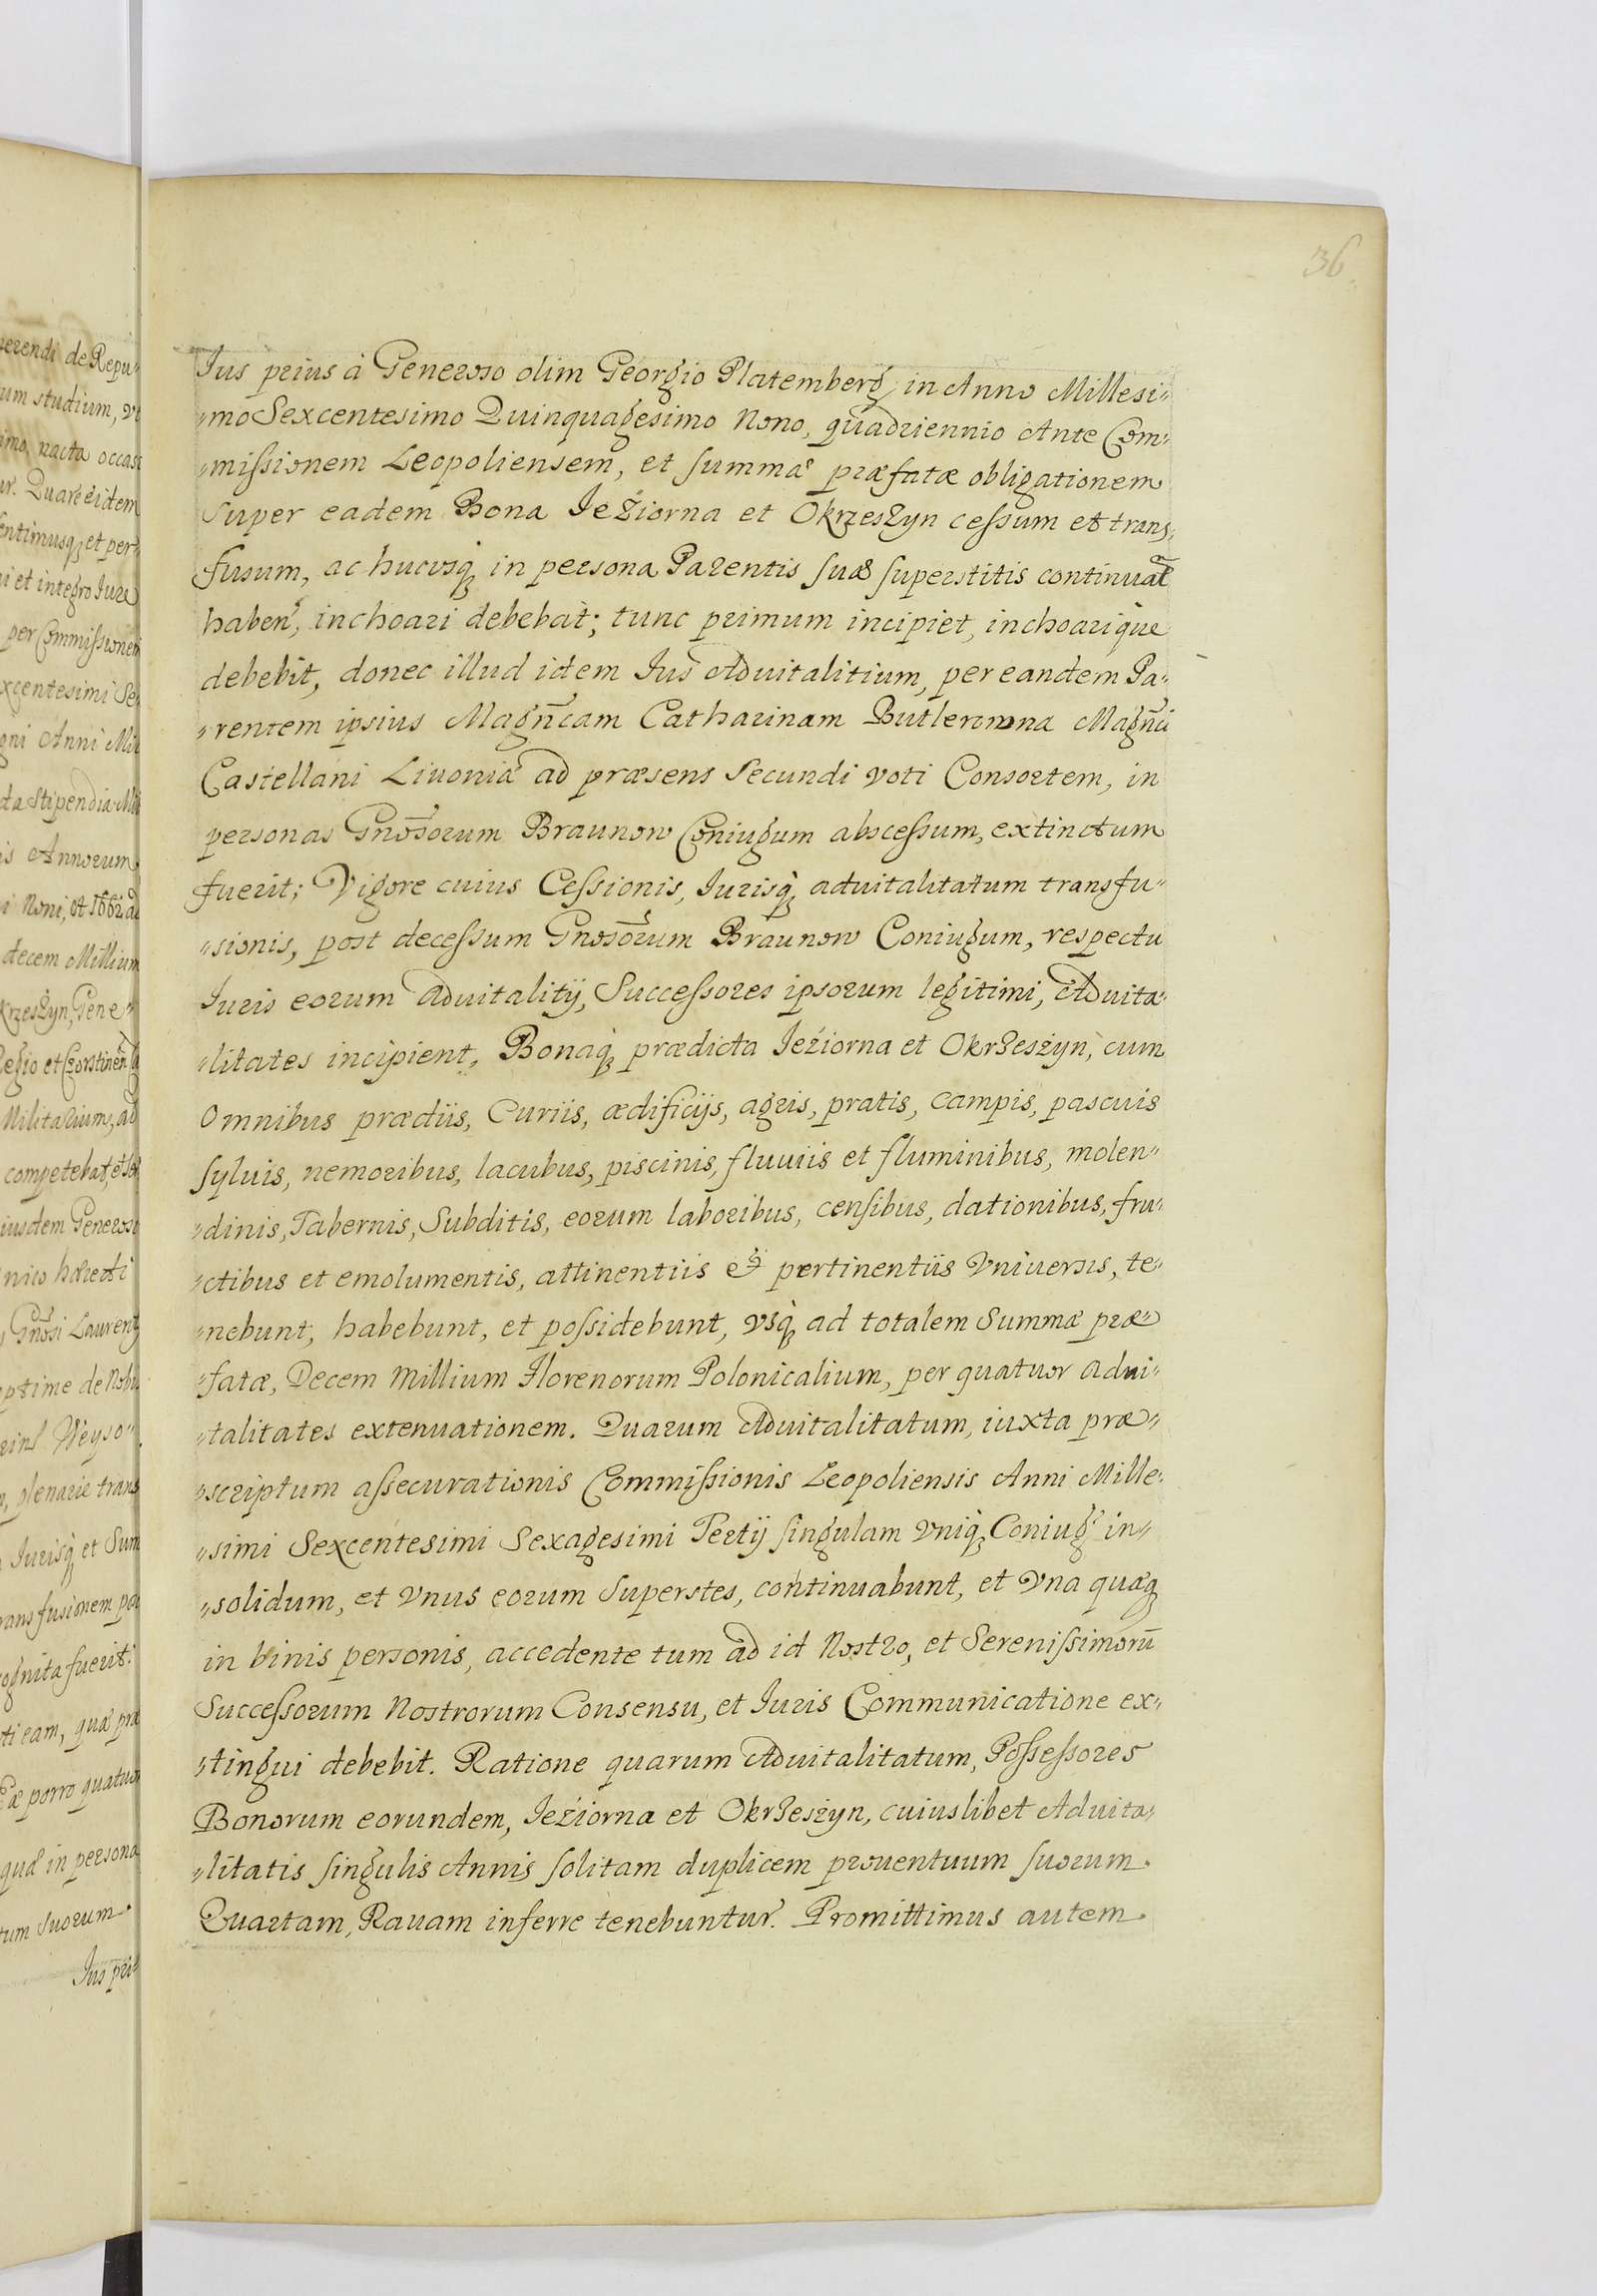 36.
Ius prius à Generoso olim Georgio Platemberg in Anno Millesi„
„mo Sexcentesimo Quinquagesimo Nono, quadriennio Ante Com„
„missionem Leopoliensem, et summæ præfatæ obligationem
super eadem Bona Ieżiorna et Okrzeszyn cessum et trans„
fusum, ac hucusq; in persona Parentis suæ superstitis continuat̃
haben̄, inchoari debebat; tunc primum incipiet, inchoarique
debebit, donec illud idem Ius Aduitalitium, per eandem Pa„
„rentem ipsius Magn̄cam Catharinam Butlerowna Magn̄ci
Castellani Liuoniæ ad præsens Secundi voti Consortem, in
personas Gnōsorum Braunow Coniugum abscessum, extinctum
fuerit; Vigore cuius Cessionis, Iurisq; aduitalitatum transfu„
„sionis, post decessum Gnosōrum Braunow Coniugum, respectu
Iuris eorum aduitalitij, Successores ipsorum legitimi, Aduita„
„litates incipient, Bonaq; prædicta Ieżiorna et Okrzeszyn, cum
Omnibus prædiis, Curiis, ædificijs, agris, pratis, campis, pascuis
syluis, nemoribus, lacubus, piscinis, fluuiis et fluminibus, molen„
„dinis, Tabernis, Subditis, eorum laboribus, censibus, dationibus, fru„
„ctibus et emolumentis, attinentiis & pertinentiis Vniuersis, te„
„nebunt, habebunt, et possidebunt, vsq; ad totalem Summæ præ„
„fatæ, Decem Millium Florenorum Polonicalium, per quatuor adui„
„talitates extenuationem. Quarum Aduitalitatum, iuxta præ„
„scriptum assecurationis Commissionis Leopoliensis Anni Mille„
„simi Sexcentesimi Sexagesimi Tertij singulam vniq; Coniug̃ in„
„solidum, et Vnus eorum Superstes, continuabunt, et Vna quæq;
in binis personis, accedente tum ad id Nostro, et Serenissimorū
Successorum Nostrorum Consensu, et Iuris Communicatione ex„
„tingui debebit. Ratione quarum Aduitalitatum, Possessores
Bonorum eorundem, Ieżiorna et Okrzeszyn, cuiuslibet Aduita„
„litatis singulis Annis solitam duplicem prouentuum suorum
Quartam, Rauam inferre tenebuntur. Promittimus autem